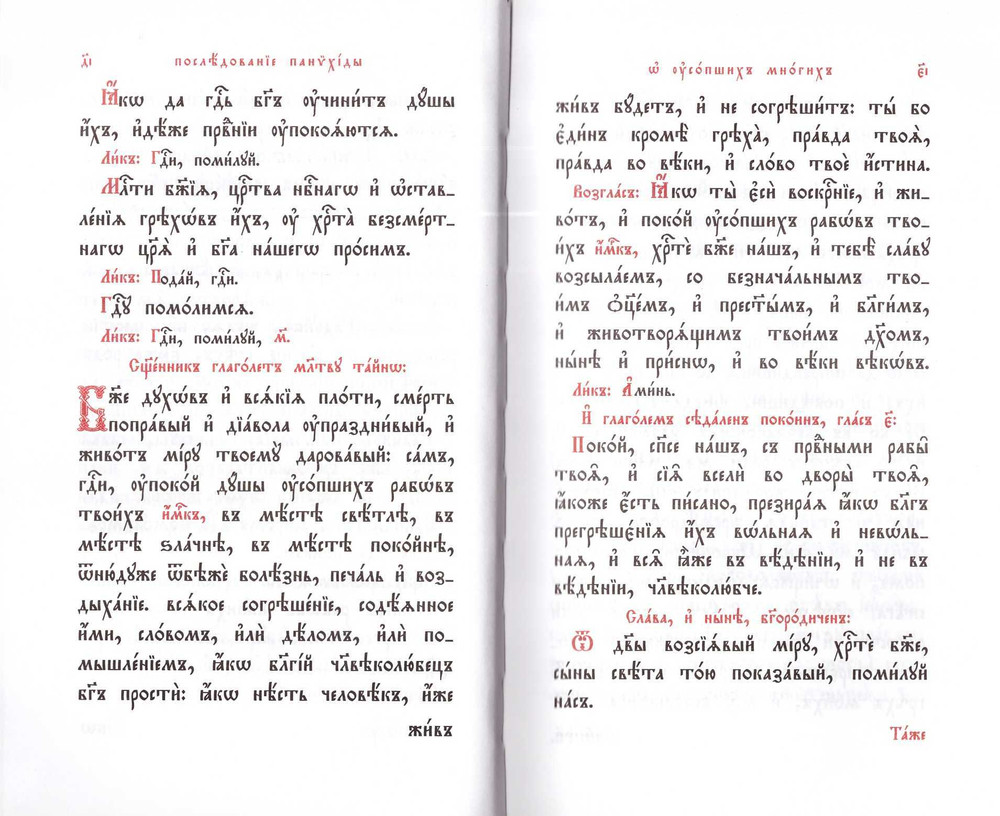 д҃і
послѣ́дованїе панѷхі́ды
Ꙗ҆́кѡ да гдⷭ҇ь бг҃ъ ᲂу҆чини́тъ дꙋ́шы
и҆́хъ, и҆дѣ́же прⷡ҇нїи ᲂу҆покоѧ́ютсѧ.
Ли́къ: Гдⷭ҇и, поми́лꙋй.
Млⷭ҇ти бж҃їѧ, црⷭ҇тва нбⷭ҇нагѡ и҆ ѡ҆ставле́нїѧ
грѣхѡ́въ и҆́хъ, ᲂу҆ хрⷭ҇та̀ безсме́ртнагѡ
цр҃ѧ̀ и҆ бг҃а на́шегѡ про́симъ.
Ли́къ: Пода́й, гдⷭ҇и.
Гдⷭ҇ꙋ помо́лимсѧ.
Ли́къ: Гдⷭ҇и, поми́лꙋй, м҃.
Сщ҃е́нникъ глаго́летъ мл҃твꙋ та́йнѡ:
Бж҃е дꙋхѡ́въ и҆ всѧ́кїѧ пло́ти, сме́рть
попра́вый и҆ дїа́вола ᲂу҆праздни́вый, и҆
живо́тъ мі́рꙋ твоемꙋ̀ дарова́вый: са́мъ,
гдⷭ҇и, ᲂу҆поко́й дꙋ́шы ᲂу҆со́пшихъ рабѡ́въ
твои́хъ и҆́мⷬ҇къ, въ мѣ́стѣ свѣ́тлѣ, въ
мѣ́стѣ ѕла́чнѣ, въ мѣ́стѣ поко́йнѣ,
ѿню́дꙋже ѿбѣжѐ болѣ́знь, печа́ль и҆ воздыха́нїе.
всѧ́кое согрѣше́нїе, содѣ́ѧнное
и҆́ми, сло́вомъ, и҆лѝ дѣ́ломъ, и҆лѝ помышле́нїемъ,
ꙗ҆́кѡ бл҃гі́й чл҃вѣколю́бецъ
бг҃ъ простѝ: ꙗ҆́кѡ нѣ́сть человѣ́къ, и҆́же
жи́въ
ѡ҆ ᲂу҆со́пшихъ мно́гихъ
є҃і
жи́въ бꙋ́детъ, и҆ не согрѣши́тъ: ты́ бо
є҆ди́нъ кромѣ̀ грѣха̀, пра́вда твоѧ̀,
пра́вда во вѣ́ки, и҆ сло́во твоѐ и҆́стина.
Возгла́съ: Ꙗ҆́кѡ ты̀ є҆сѝ воскрⷭ҇нїе, и҆ живо́тъ,
и҆ поко́й ᲂу҆со́пшихъ рабѡ́въ твои́хъ
и҆́мⷬ҇къ, хрⷭ҇тѐ бж҃е на́шъ, и҆ тебѣ̀ сла́вꙋ
возсыла́емъ, со безнача́льнымъ твои́мъ
ѻ҆ц҃е́мъ, и҆ прест҃ы́мъ, и҆ бл҃ги́мъ,
и҆ животворѧ́щимъ твои́мъ дх҃омъ,
ны́нѣ и҆ при́снѡ, и҆ во вѣ́ки вѣкѡ́въ.
Ли́къ: А҆ми́нь.
И҆ глаго́лемъ сѣда́лен поко́инъ, гла́съ є҃:
Поко́й, сп҃се на́шъ, съ првⷣными рабы̑
твоѧ̑, и҆ сїѧ̑ вселѝ во дворы̀ твоѧ̑,
ꙗ҆́коже є҆́сть пи́сано, презира́ѧ ꙗ҆́кѡ бл҃гъ
прегрѣшє́нїѧ и҆́хъ вѡ́льнаѧ и҆ невѡ́льнаѧ,
и҆ всѧ̑ ꙗ҆̀же въ вѣ́дѣнїи, и҆ не въ
вѣ́дѣнїи, чл҃вѣколю́бче.
Сла́ва, и҆ ны́нѣ, бг҃оро́диченъ:
Ѿ дв҃ы возсїѧ́вый мі́рꙋ, хрⷭ҇тѐ бж҃е,
сы́ны свѣ́та то́ю показа́вый, поми́лꙋй
на́съ.
Та́же